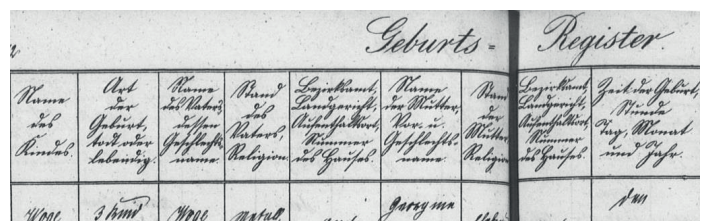 Geburts= Register.
Name
des
Kindes.
Art
der
Geburt,
todt oder
lebendig.
Name
des Vaters,
dessen
Geschlechts-
name.
Stand
des
Vaters,
Religion.
Bezirksamt,
Landgericht,
Aufenthaltsort,
Nummer
des Hauses.
Name
der Mutter,
Vor. u.
Geschlechts-
name.
Stand
der
Mutter
Religion
Bezirksamt,
Landgericht,
Aufenthaltsort,
Nummer
des Hauses.
Zeit der Geburt,
Stunde
Tag, Monat
und Jahr.
den